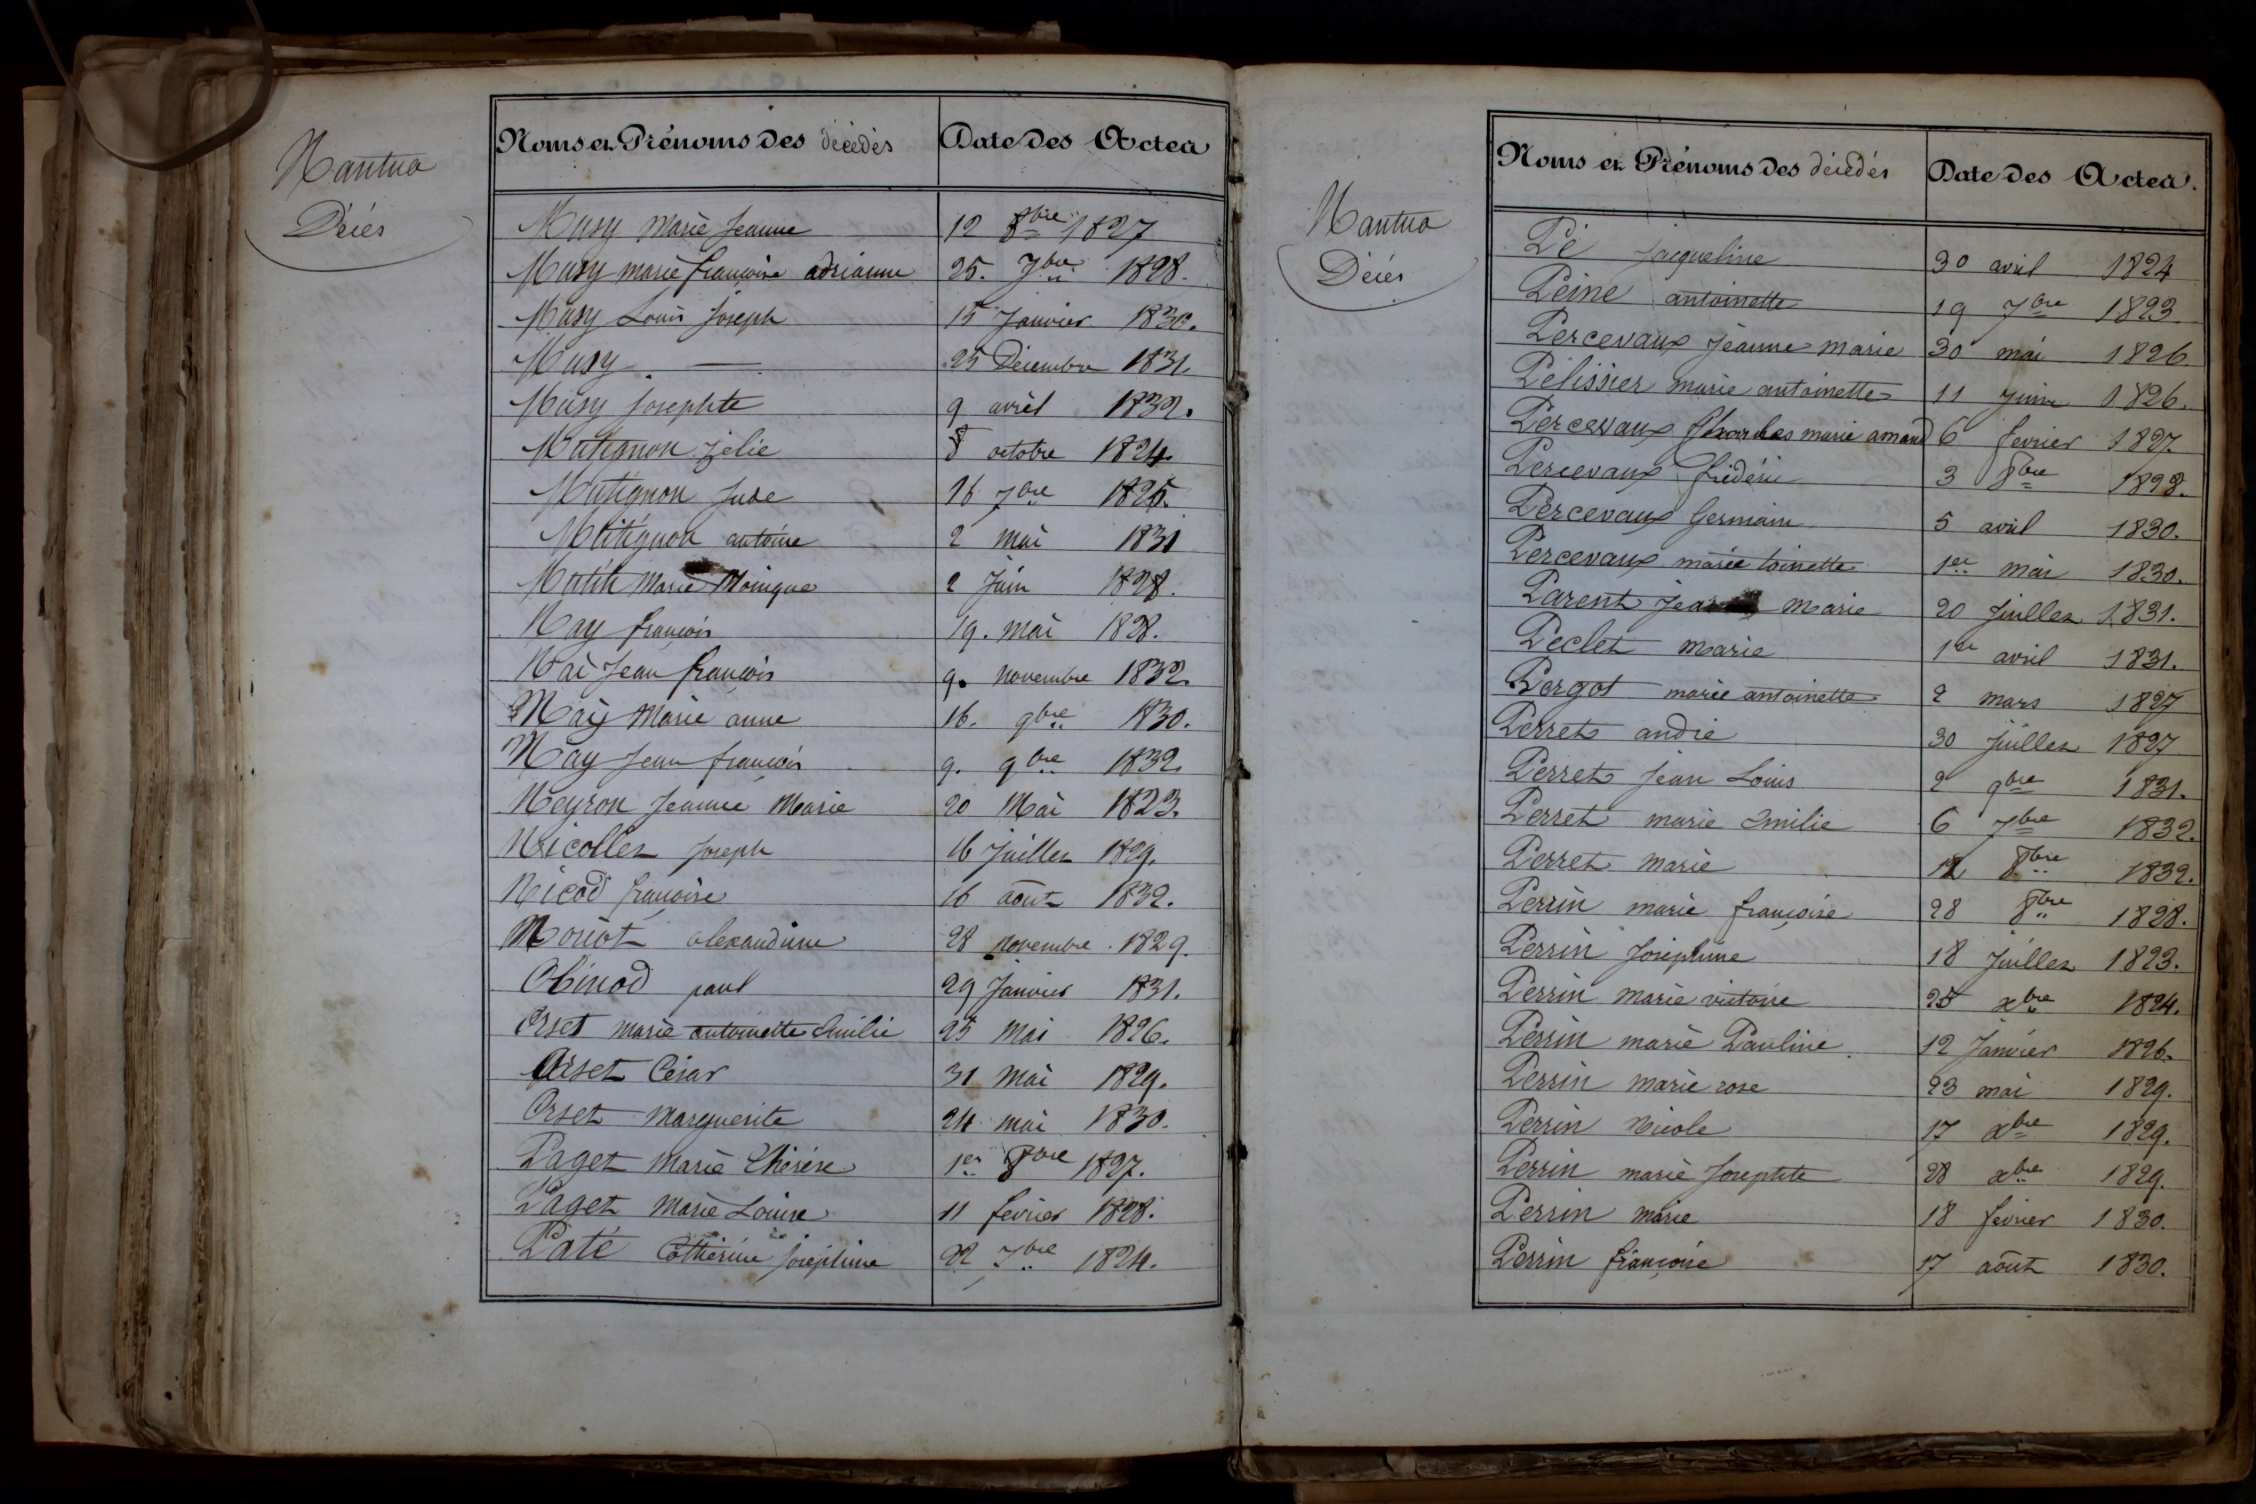 Nantua
Décés
Noms et Prénoms des décédés Date des Actes
Musy Marie Jeanne 12 8bre 1827
Musy marie françoise adrianne 25. 7bre 1828.
Musy Louis Joseph 15 Janvier 1830.
Musy. — 25 Décembre 1831.
Musy Josephte 9 avril 1832.
Mutignon Zélie 8 octobre 1824.
Mutignon Jude 16 7bre 1825.
Mutignon antoine 2 mai 1831
Marie Monique 2 Juin 1828.
Nay françois 19. mai 1828.
Nai Jean françois 9. novembre 1832.
Naÿ Marie anne 16. 9bre 1830.
Nay Jean françois 9. 9bre 1832.
Neyron Jeanne Marie 20 Mai 1823.
Nicollet Joseph 16 Juillet 1829.
Nicod françoise 16 août 1832.
alexandrine 28 novembre 1829.
Obinod paul 29 Janvier 1831.
Orset marie antoinette Emilie 25 Mai 1826.
Orset César 31 Mai 1829.
Orset Marguerite 24 mai 1830.
Paget Marie Thérèse 1er 8bre 1827.
Paget Marie Louise 11 février 1828.
Paté Cathérine Joséphine 22 7bre 1824.
Nantua
Décés
Noms et Prénoms des décédés Date des Actes.
Pé Jacqueline 30 avril 1824
Peine antoinette 19 7bre 1823
Percevaux Jeanne marie 30 mai 1826
Pélissier marie antoinette 11 Juin 1826.
Percevaux Charles marie amand 6 février 1827.
Percevaux frédéric 3 8bre 1828.
Percevaux Germain 5 avril 1830.
Percevaux marie toinette 1er mai 1830.
Parent Jean Marie 20 Juillet 1831.
Peclet marie 1er avril 1831.
Pergot marie antoinette 2 mars 1827
Perret andré 30 Juillet 1827
Perret Jean Louis 2 9bre 1831.
Perret marie Emilie 6 7bre 1832.
Perret marie 12 8bre 1832.
Perrin marie françoise 28 8bre 1828.
Perrin Joséphine 18 Juillet 1823.
Perrin marie victoire 25 xbre 1824.
Perrin marie Pauline 12 Janvier 1826.
Perrin marie rose 23 mai 1829.
Perrin Nicole 17 xbre 1829.
Perrin marie Josephte 28 xbre 1829.
Perrin marie 18 février 1830.
Perrin françoise 17 août 1830.